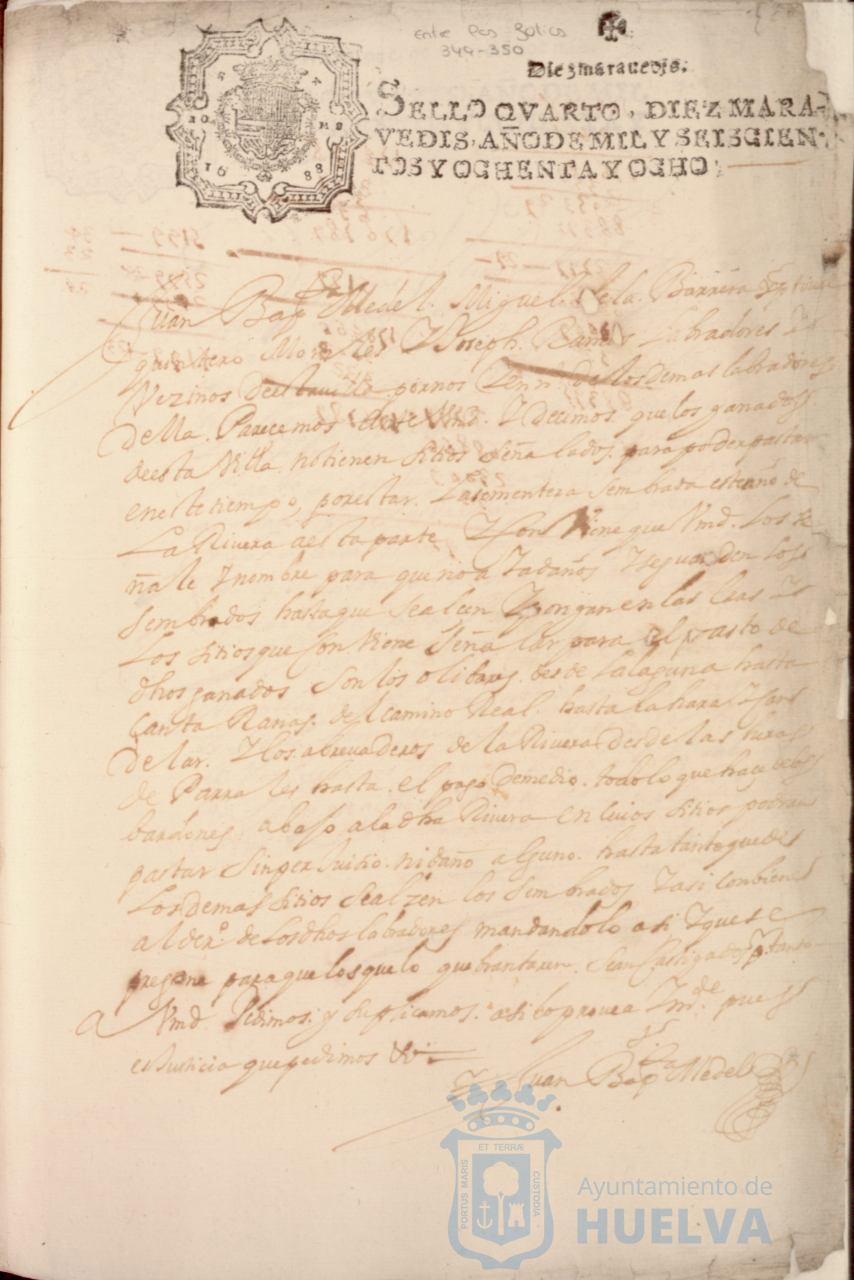 Entre Pas Botica
344-350
Diez maravedis.
SELLO QVARTO, DIEZ MARA-
VEDIS, AÑO DE MIL Y SEISCIEN-
TOS Y OCHENTA Y OCHO,
1688
Juan Bapta Medel. Miguel de la Barrera
quintero Morales Y Joseph labradores Y
Vezinos desta villa por nos Y en n. de los demas labradores
della. Parecemos ante Vmd. Y Decimos que los ganados
de esta Villa no tienen sitios señalados para poder pastar
en este tiempo, por estar La sementera sembrada este año de
La Rivera a esta parte Y Conviene que Vmd. Los se
ñale Y nombre para que no aya daños Y se guarden los
sembrados hasta que se alcen Y pongan en las Eras Y
Los sitios que Conviene señalar para el pasto de
dhos ganados son los olibares desde la laguna hasta
Canta Ranas. del camino Real. hasta
de lar. Y los abrevaderos de la Rivera desde las
de Parrales hasta el paso Demedio. todo lo que hay
abajo a la dha Rivera en cuios sitios podran
pastar sin perjuicio ni daño alguno. hasta tanto que de
Los demas sitios se alzen los sembrados Y asi conbiene
al der.o de los dhos labradores mandandolo asi Y que se
pregone para que los que lo quebrantaren sean Castigados p. tanto
A Vmd. Pedimos y suplicamos asi lo provea Y m.de pues
es Justicia que pedimos
Juan Bapta Medel
ET TERRÆ
PORTUS MARIS
CUSTODIA
Ayuntamiento de
HUELVA